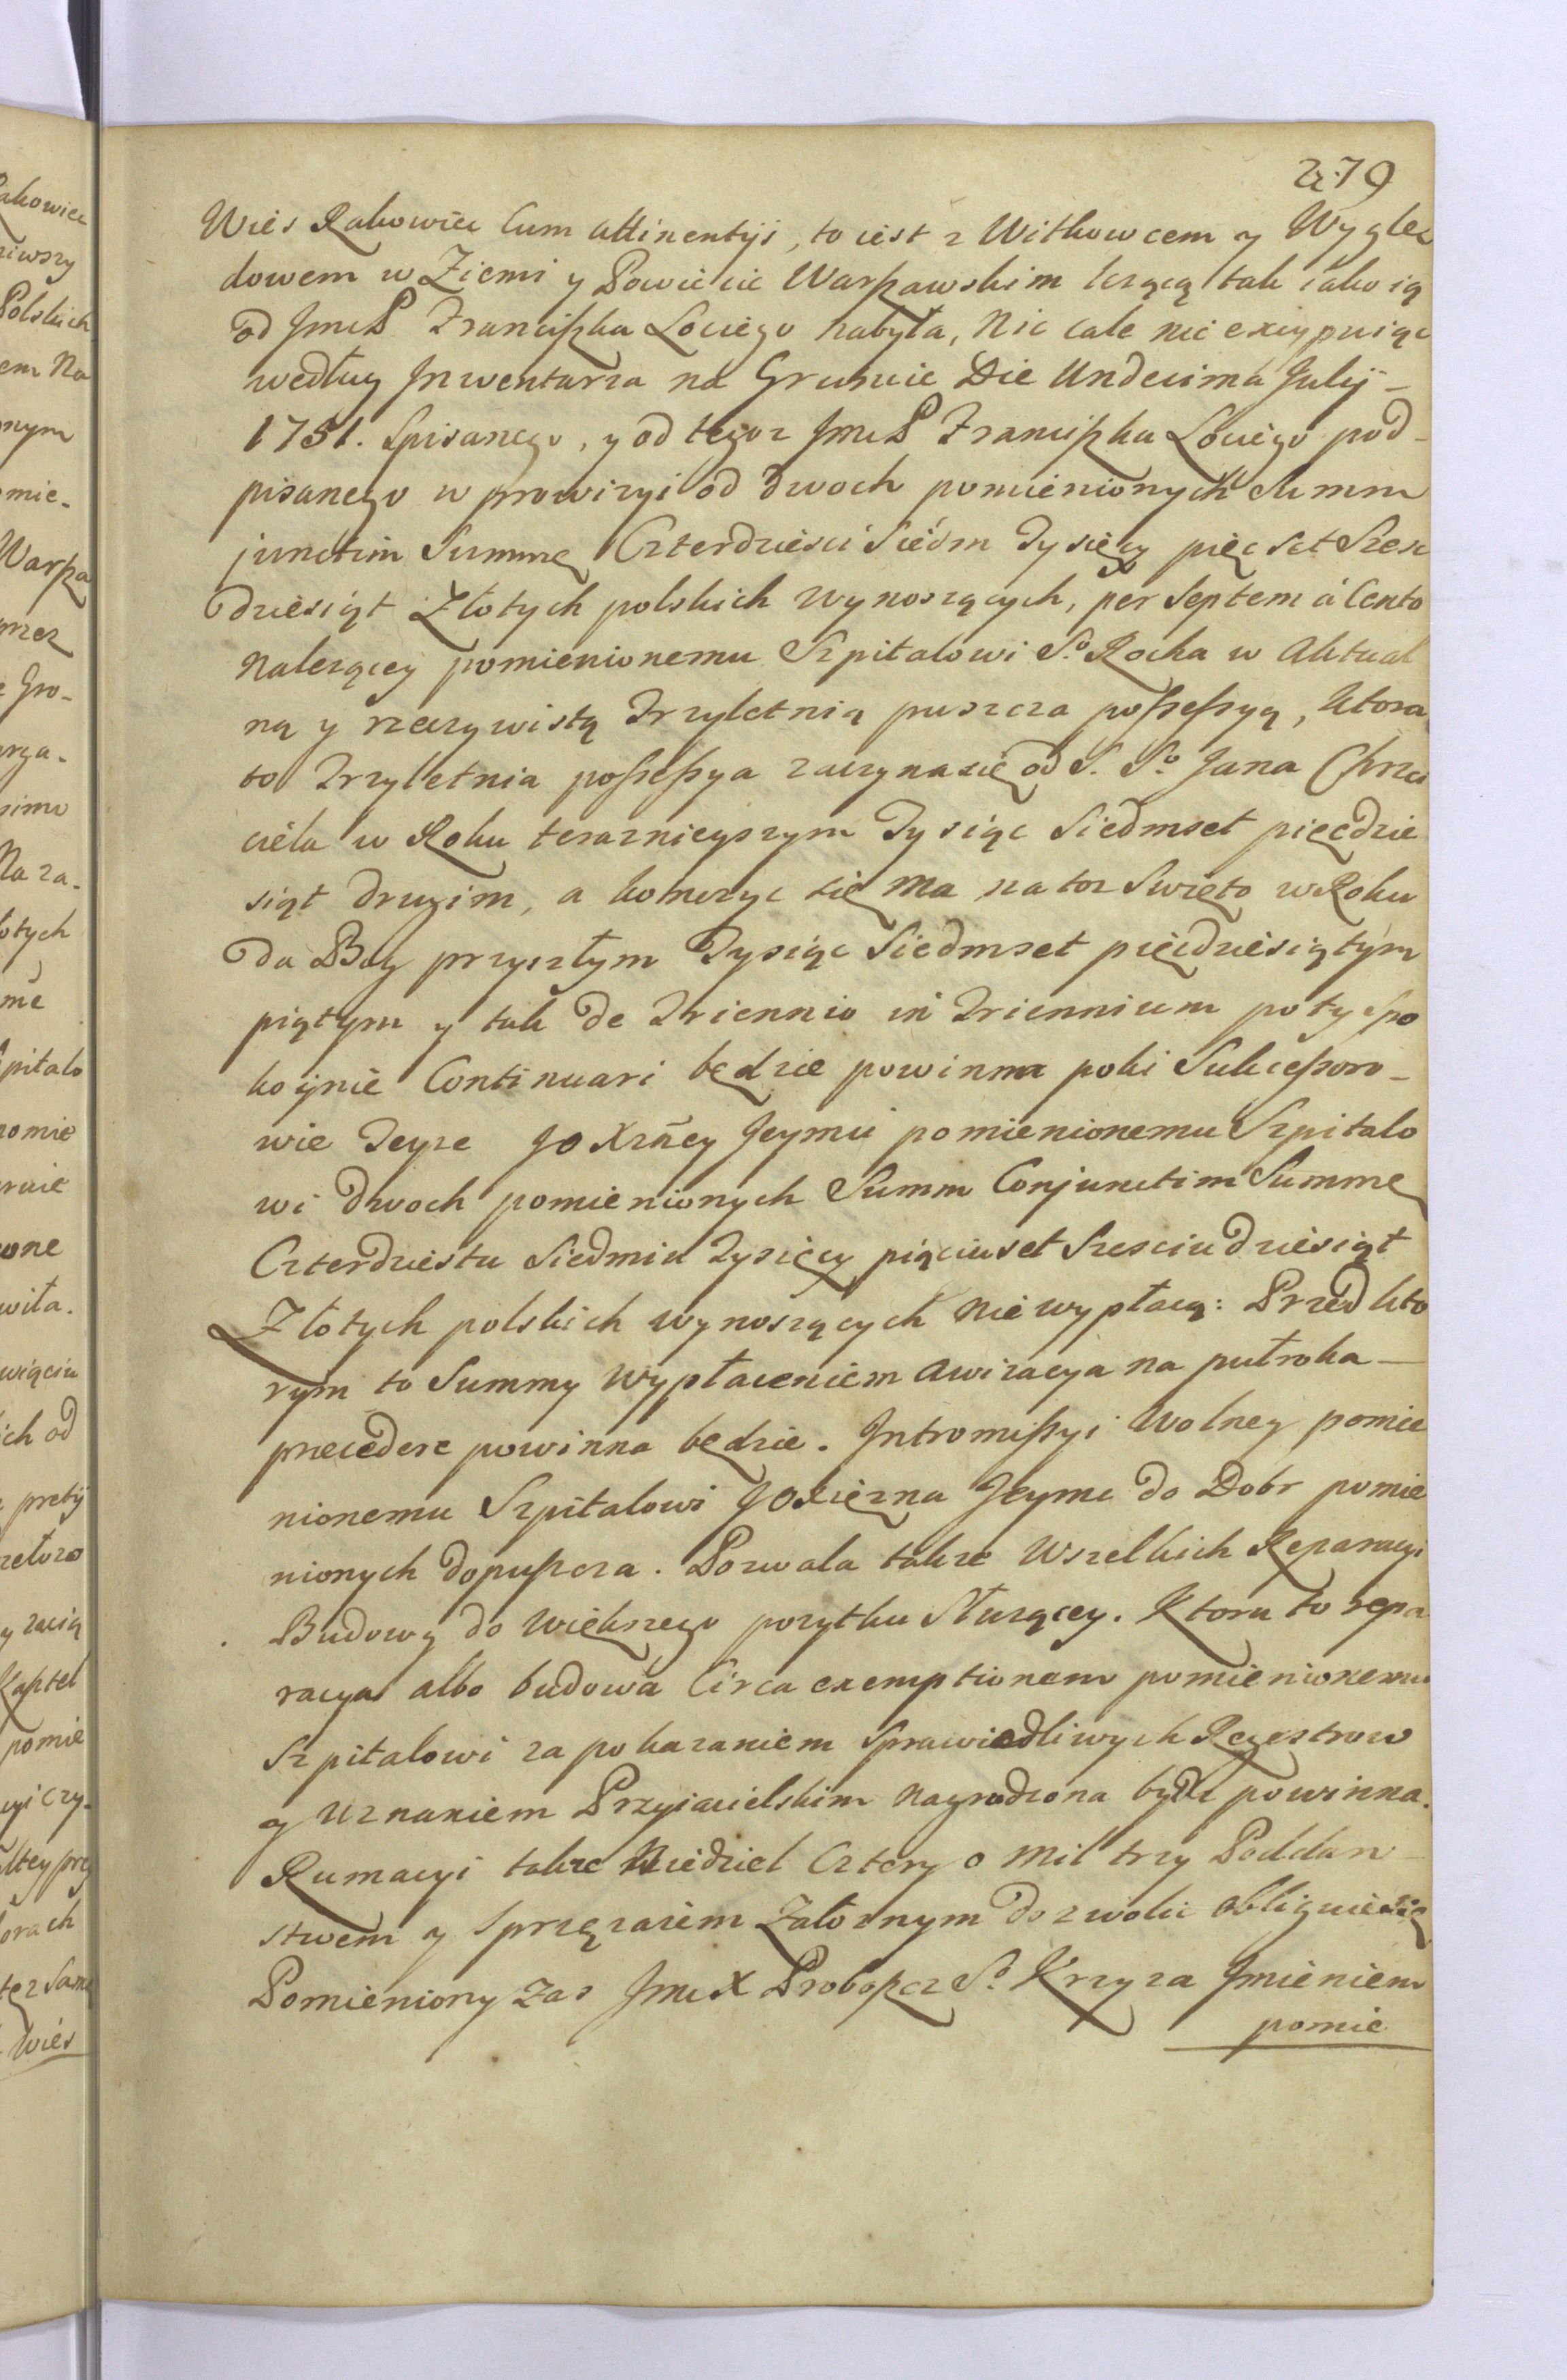 279
Wies Rakowiec Cum attinentijs, to iest z Witkowcem y Wyglę
dowem w Ziemi y Powiecie Warszawskim leżącą tak iako ią
od JmcP Franciszka Lociego nabyła, nic cale nie excypuiąc
według Inwentarza na Gruncie Die Undecima Julij –
1751. Spisanego, y od tegoz JmcP Franciszka Lociego pod-
pisanego w prowizyi od dwoch pomienionych Summ
junctim Summę Czterdziesci Siedm Tysięcy pięcset Szesc
dziesiąt Złotych polskich wynoszących, per Septem à Cento
Nalezącey pomienionemu Szpitalowi So Rocha w Aktual
ną y rzeczywistą Trzyletnią puszcza possessyą, Ktora
to Trzyletnia possessya zaczyna się od S. So Jana Chrzci
ciela w Roku teraznieyszym Tysiąc Siedmset pięcdzie
siąt drugim, a konczyc się ma na toz Swięto w Roku
da Bog przyszłym Tysiąc Siedmset pięcdziesiątym
piątym y tak de Triennio in Triennium poty spo
koynie Continuari będzie powinna poki Sukcessoro-
wie Teyze JO Xzncy Jeymci pomienionemu Szpitalo
wi dwoch pomienionych Summ Conjunctim Summę
Czterdziestu Siedmiu Tysięcy pięciuset Szesciudziesiąt
Złotych polskich wynoszących nie wypłacą: Przed kto
rym to Summy wypłaceniem awizacya na pułroka –
precedere powinna będzie. Intromissyi wolney pomie
nionemu Szpitalowi JOXiężna Jeymc do Dobr pomie
nionych dopuszcza. Pozwala takze wszelkich Reparacyi
Budowy do większego pozytku Służącey. Ktora to repa
racya albo budowa Circa exemptionem pomienionemu
Szpitalowi za pokazaniem Sprawiedliwych Regestrow
y uznaniem Przyiacielskim nagrodzona bydz powinna.
Rumacyi takze Niedziel Cztery o mil trzy Poddan –
stwem y Sprzęzaiem Załoznym dozwolic obliguie się
Pomieniony zas JmcX Proboszcz So Krzyza Imieniem
pomie